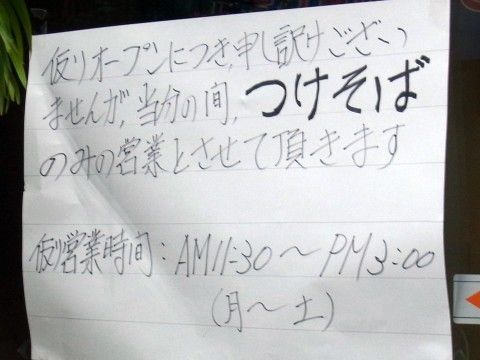 仮りオープンにつき、申し訳けござい
ませんが、当分の間、つけそば
のみの営業とさせて頂きます
仮り営業時間：AM11:30～PM3:00
(月～土)